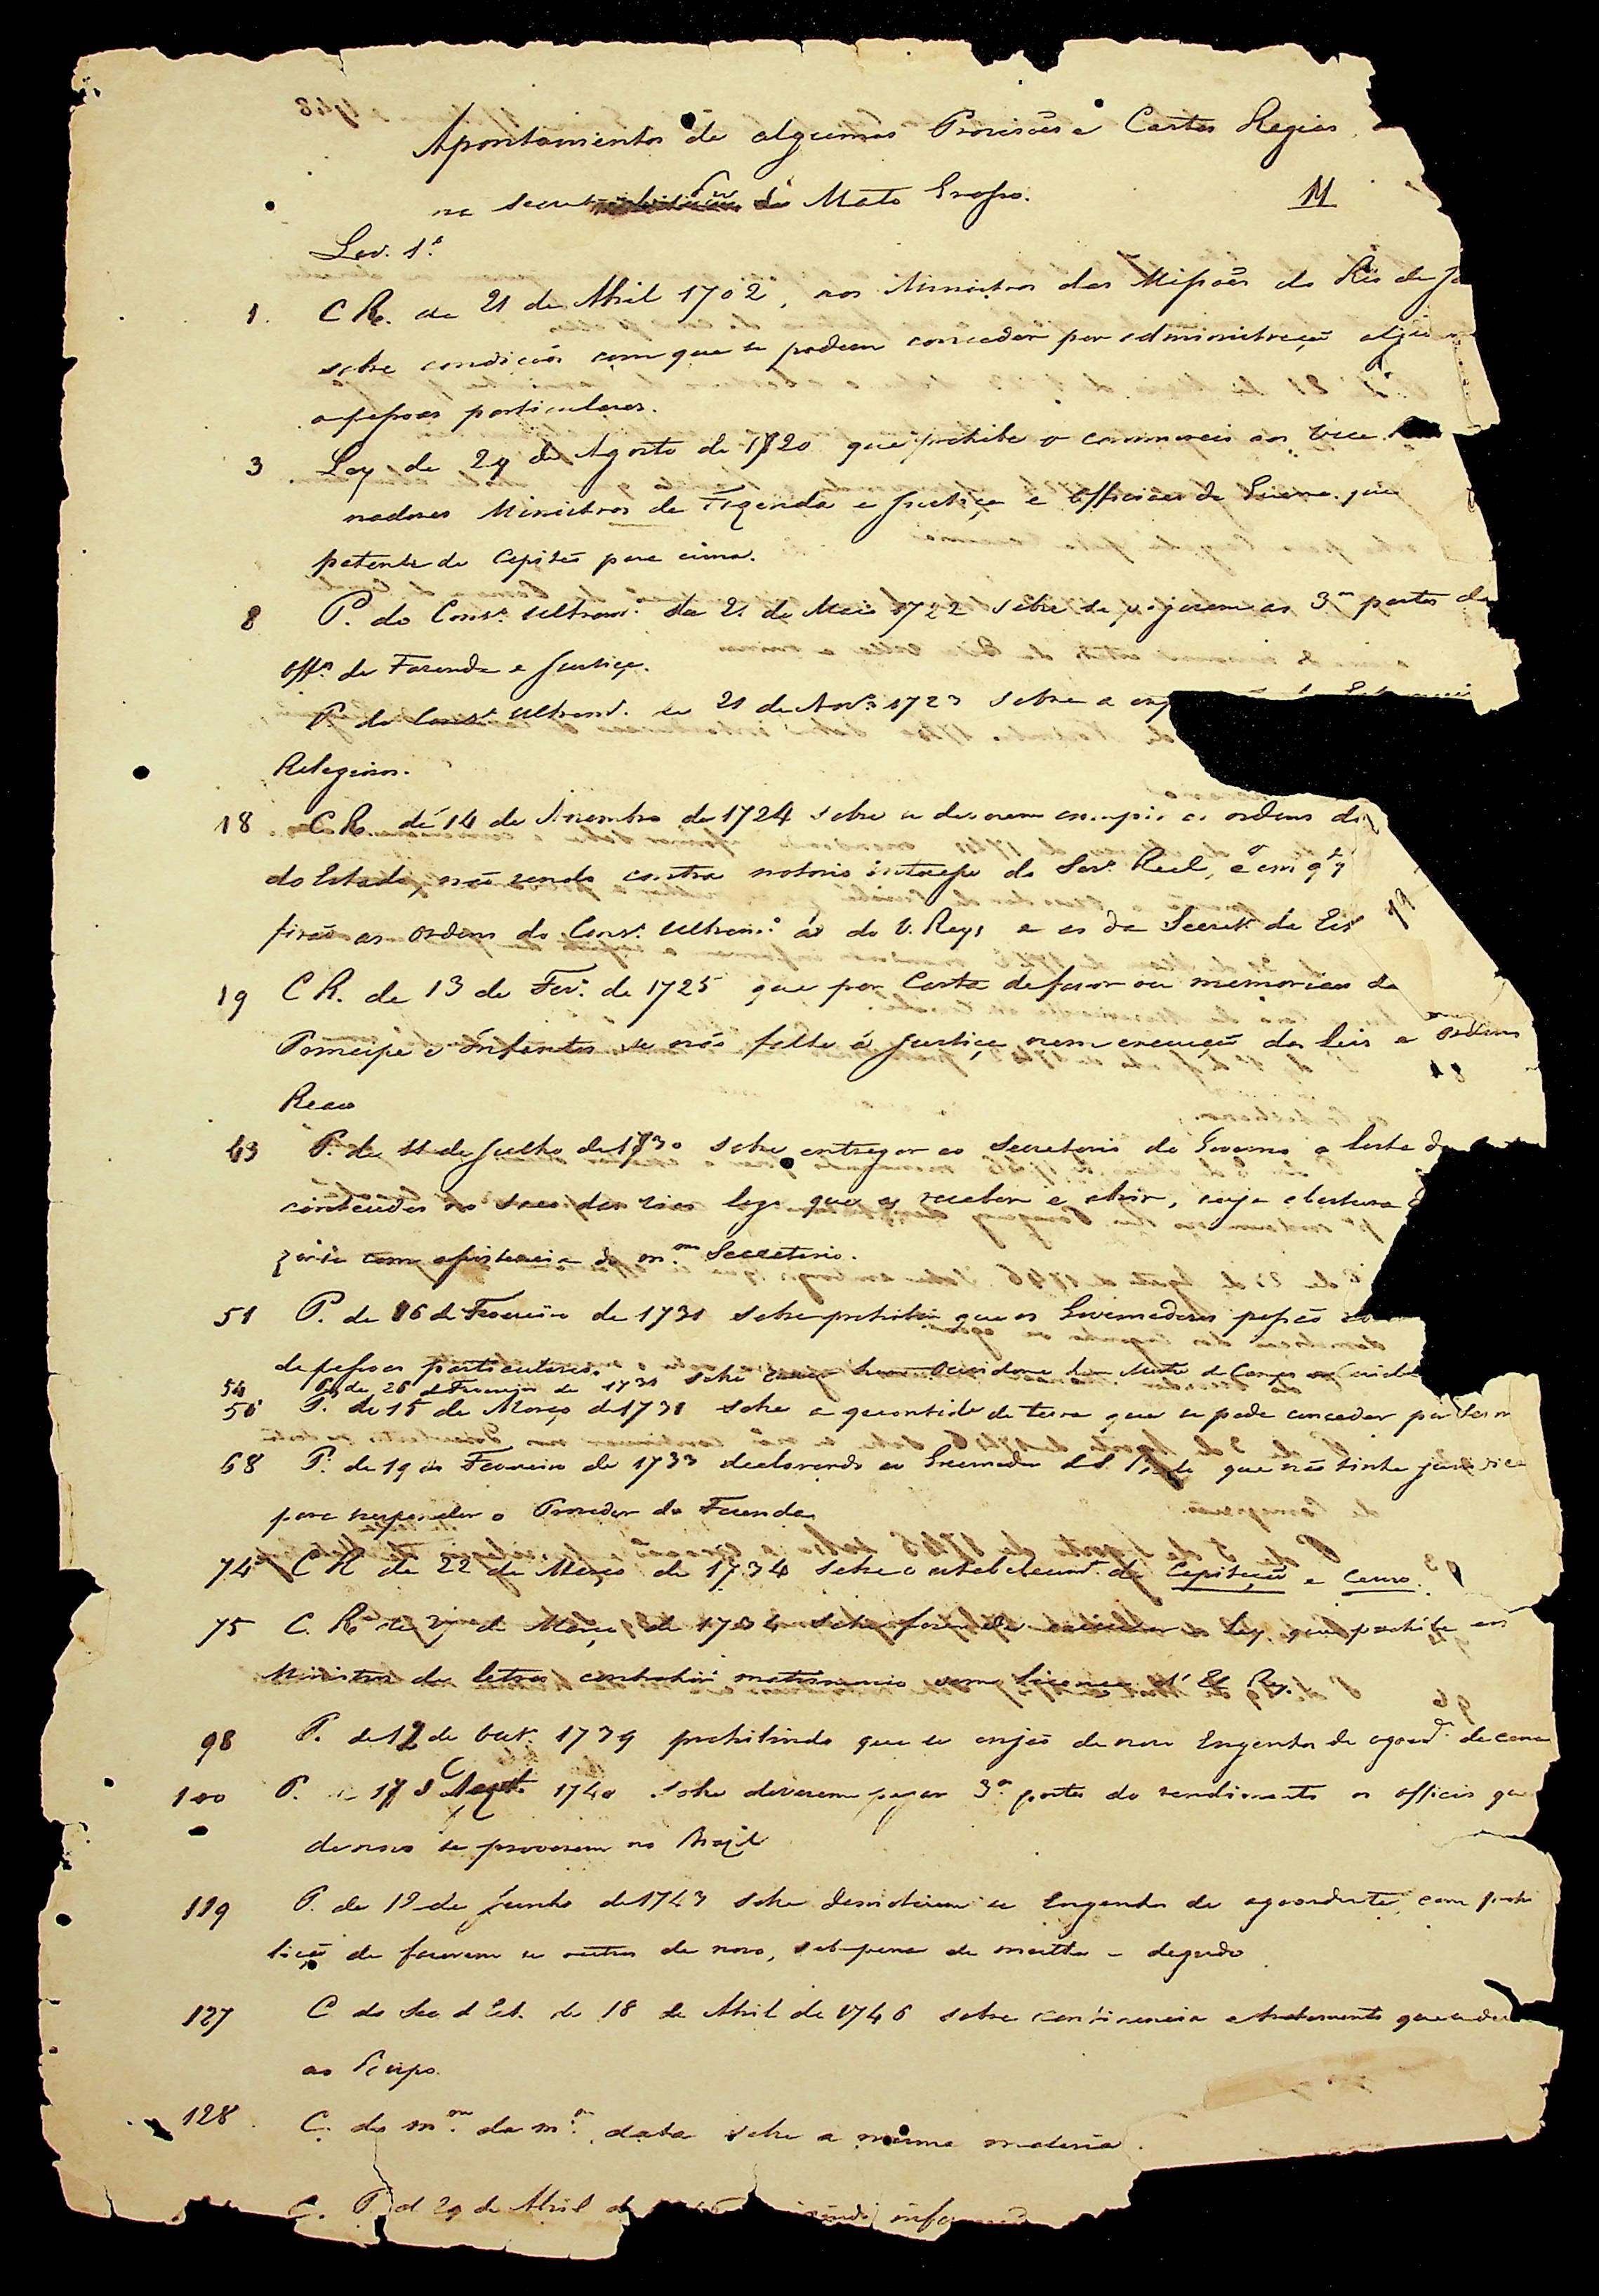 Apontamentos de algumas Provisões e Cartas Regias
na Secret do Gov de Mato Grosso.
11
Liv. 1º
1. C R. de 21 de Abril 1702, aos Ministros das Missões do Rio de Ja
sobre condições com que se podem conceder por administração
a pessoas particulares.
3 Ley de 29 de Agosto de 1720 que prohibe o commercio aos Vice
nadores Ministros de Fazenda e Justiça e Officiaes de Guerra que
patente de Capitão para cima.
8 P. do Consº Ultramº de 21 de Maio 1722 sobre se pagarem as 3as partes do
Offos de Fazenda e Justiça.
P. do Consº Ultramº de 21 de Novº 1723 sobre a
Religiosos.
18 C R. de 14 de Novembro de 1724 sobre se deverem cumprir as ordens do
do Estado, não sendo contra notorio interesse do Servº Real, e em q
firão as Ordens do Consº Ultramº ás do V. Rey, e as da Secretª de Est
19 C R. de 13 de Fevº de 1725 que por Carta de favor ou memoriaes de
Principe e Infantes se não falte á Justiça nem execução das Leis e Ordens
Reaes
43 P. de 11 de Julho de 1730 sobre entregar ao Secretario do Governo a lista
conteudos no saco das vias logo que as receber e abrir, cuja abertura
zérse com assistencia do mmo Secretario.
51 P. de 16 de Fevereiro de 1731 sobre prohibir que os Governadores passão
de pessoas particulares.
54 P. de 26 de Fevereiro de 1731 sobre
56 P. de 15 de Março de 1731 sobre a quantidade de terra que se pode conceder por Sesm
68 P. de 19 de Fevereiro de 1733 declarando ao Governador de S. Paulo que não tinha jurisdica
para suspender o Provedor da Fazenda
74 C R de 22 de Março de 1734 sobre o estabelecimtº da Capitação e Censo.
75 C. R. de de Março de 1734 sobre fazer se executar a Ley, que prohibe aos
Ministros de letras contrahir matrimonio sem licença d'El Rey.
98 P. de 12 de Outº 1739 prohibindo que se erijão de novo Engenhos de agoardte de cana
100 P. 17 d 1740 sobre deverem pagar 3as partes do rendimento os officios que
de novo se proverem no Brazil
119 P. de 12 de Junho de 1743 sobre demolirem se Engenhos de agoardente, com prohi
bição de fazerem se outros de novo, sob pena de multa e degredo
127 C do Sec d'Est. de 18 de Abril de 1746 sobre continencia e tratamento que se de
ao Bispo.
128. C. do mmo da mma data sobre a mesma materia.
P. d 29 de Abril d